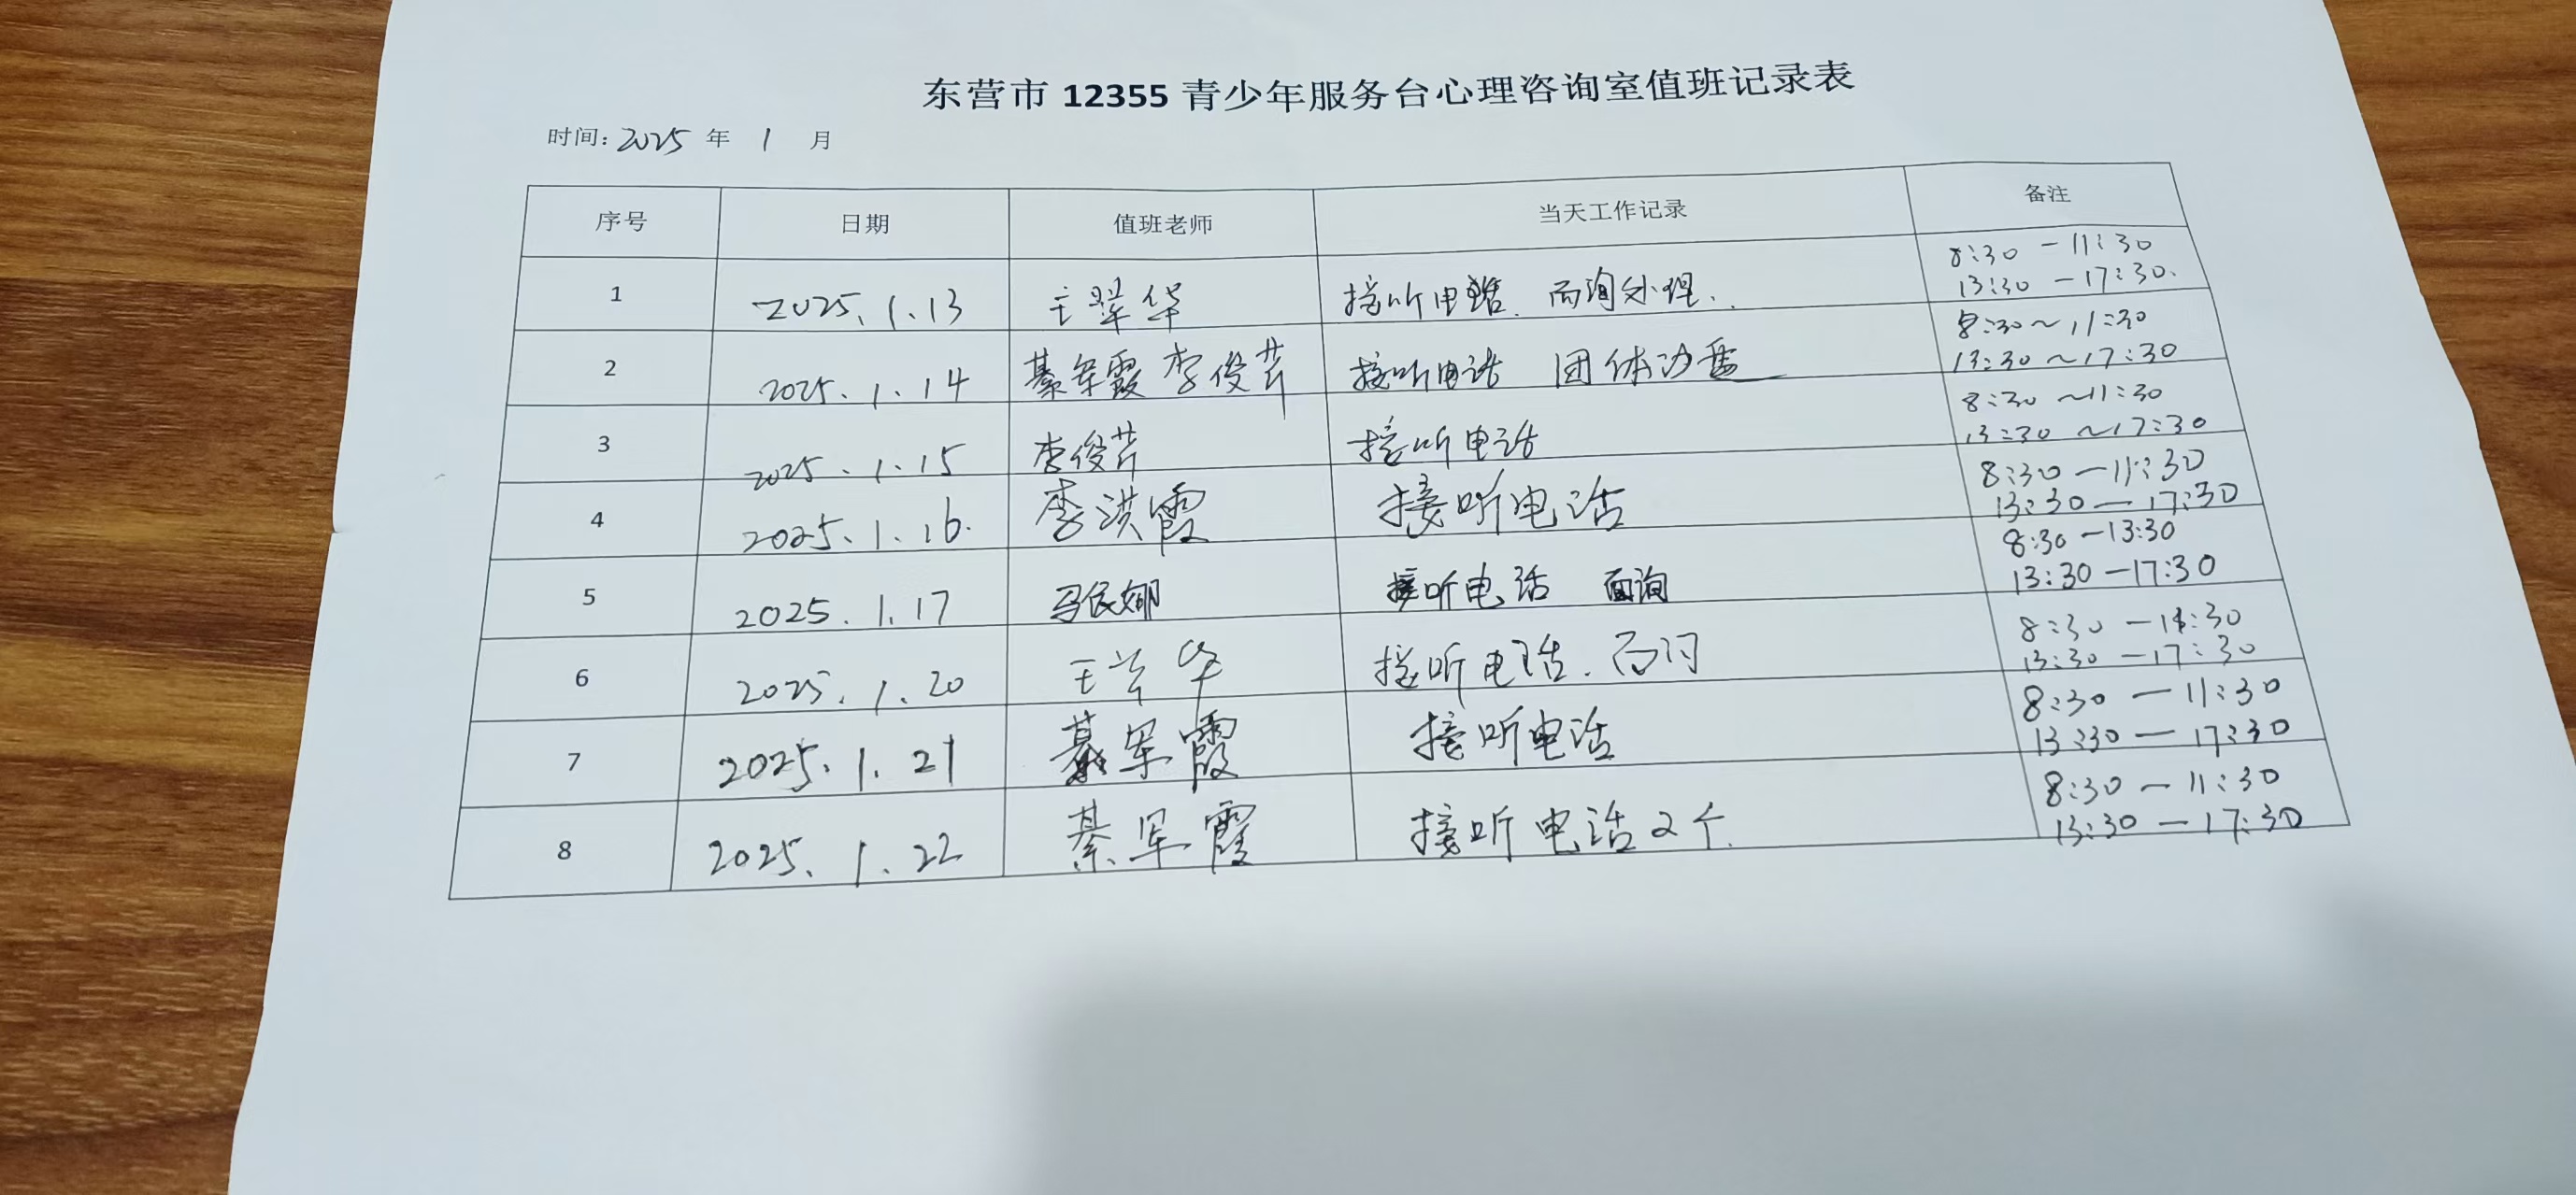 东营市 12355 青少年服务台心理咨询室值班记录表
时间: 2025 年 1 月
序号 日期 值班老师 当天工作记录 备注
1 2025.1.13 王翠华 接听电话. 面询处理. 8:30 — 11:30
13:30 — 17:30.
2 2025.1.14 綦军霞 李俊芹 接听电话 团体沙盘 8:30~11:30
13:30~17:30
3 2025.1.15 李俊芹 接听电话 8:30~11:30
13:30~17:30
4 2025.1.16. 李洪霞 接听电话 8:30—11:30
13:30—17:30
5 2025.1.17 接听电话 面询 8:30—13:30
13:30—17:30
6 2025.1.20 王 华 接听电话. 面询 8:30—11:30
13:30—17:30
7 2025.1.21 綦军霞 接听电话 8:30—11:30
13:30—17:30
8 2025.1.22 綦军霞 接听电话2个. 8:30—11:30
13:30—17:30